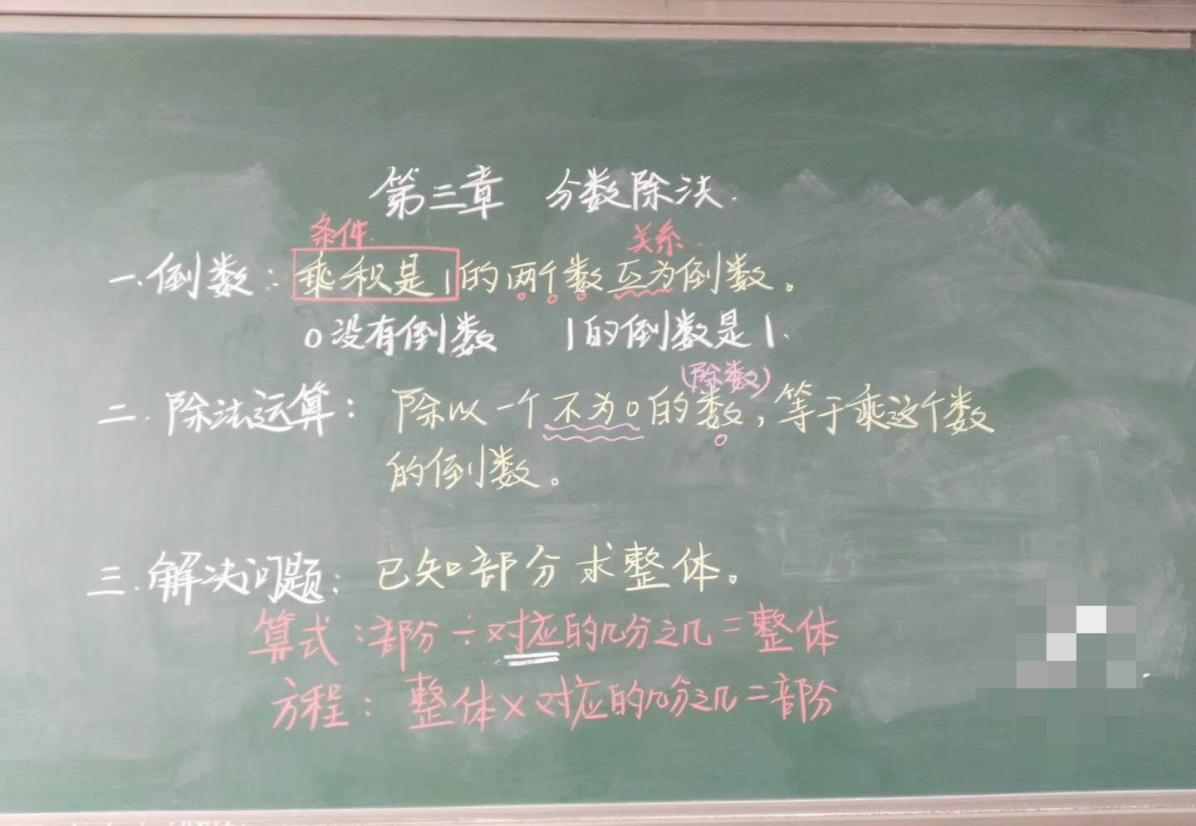 第三章 分数除法.
条件. 关系.
一.倒数:乘积是1的两个数互为倒数。
0没有倒数 1的倒数是1.
(除数)
二.除法运算:除以一个不为0的数,等于乘这个数
的倒数。
三.解决问题:已知部分求整体。
算式:部分÷对应的几分之几=整体
方程:整体×对应的几分之几=部分